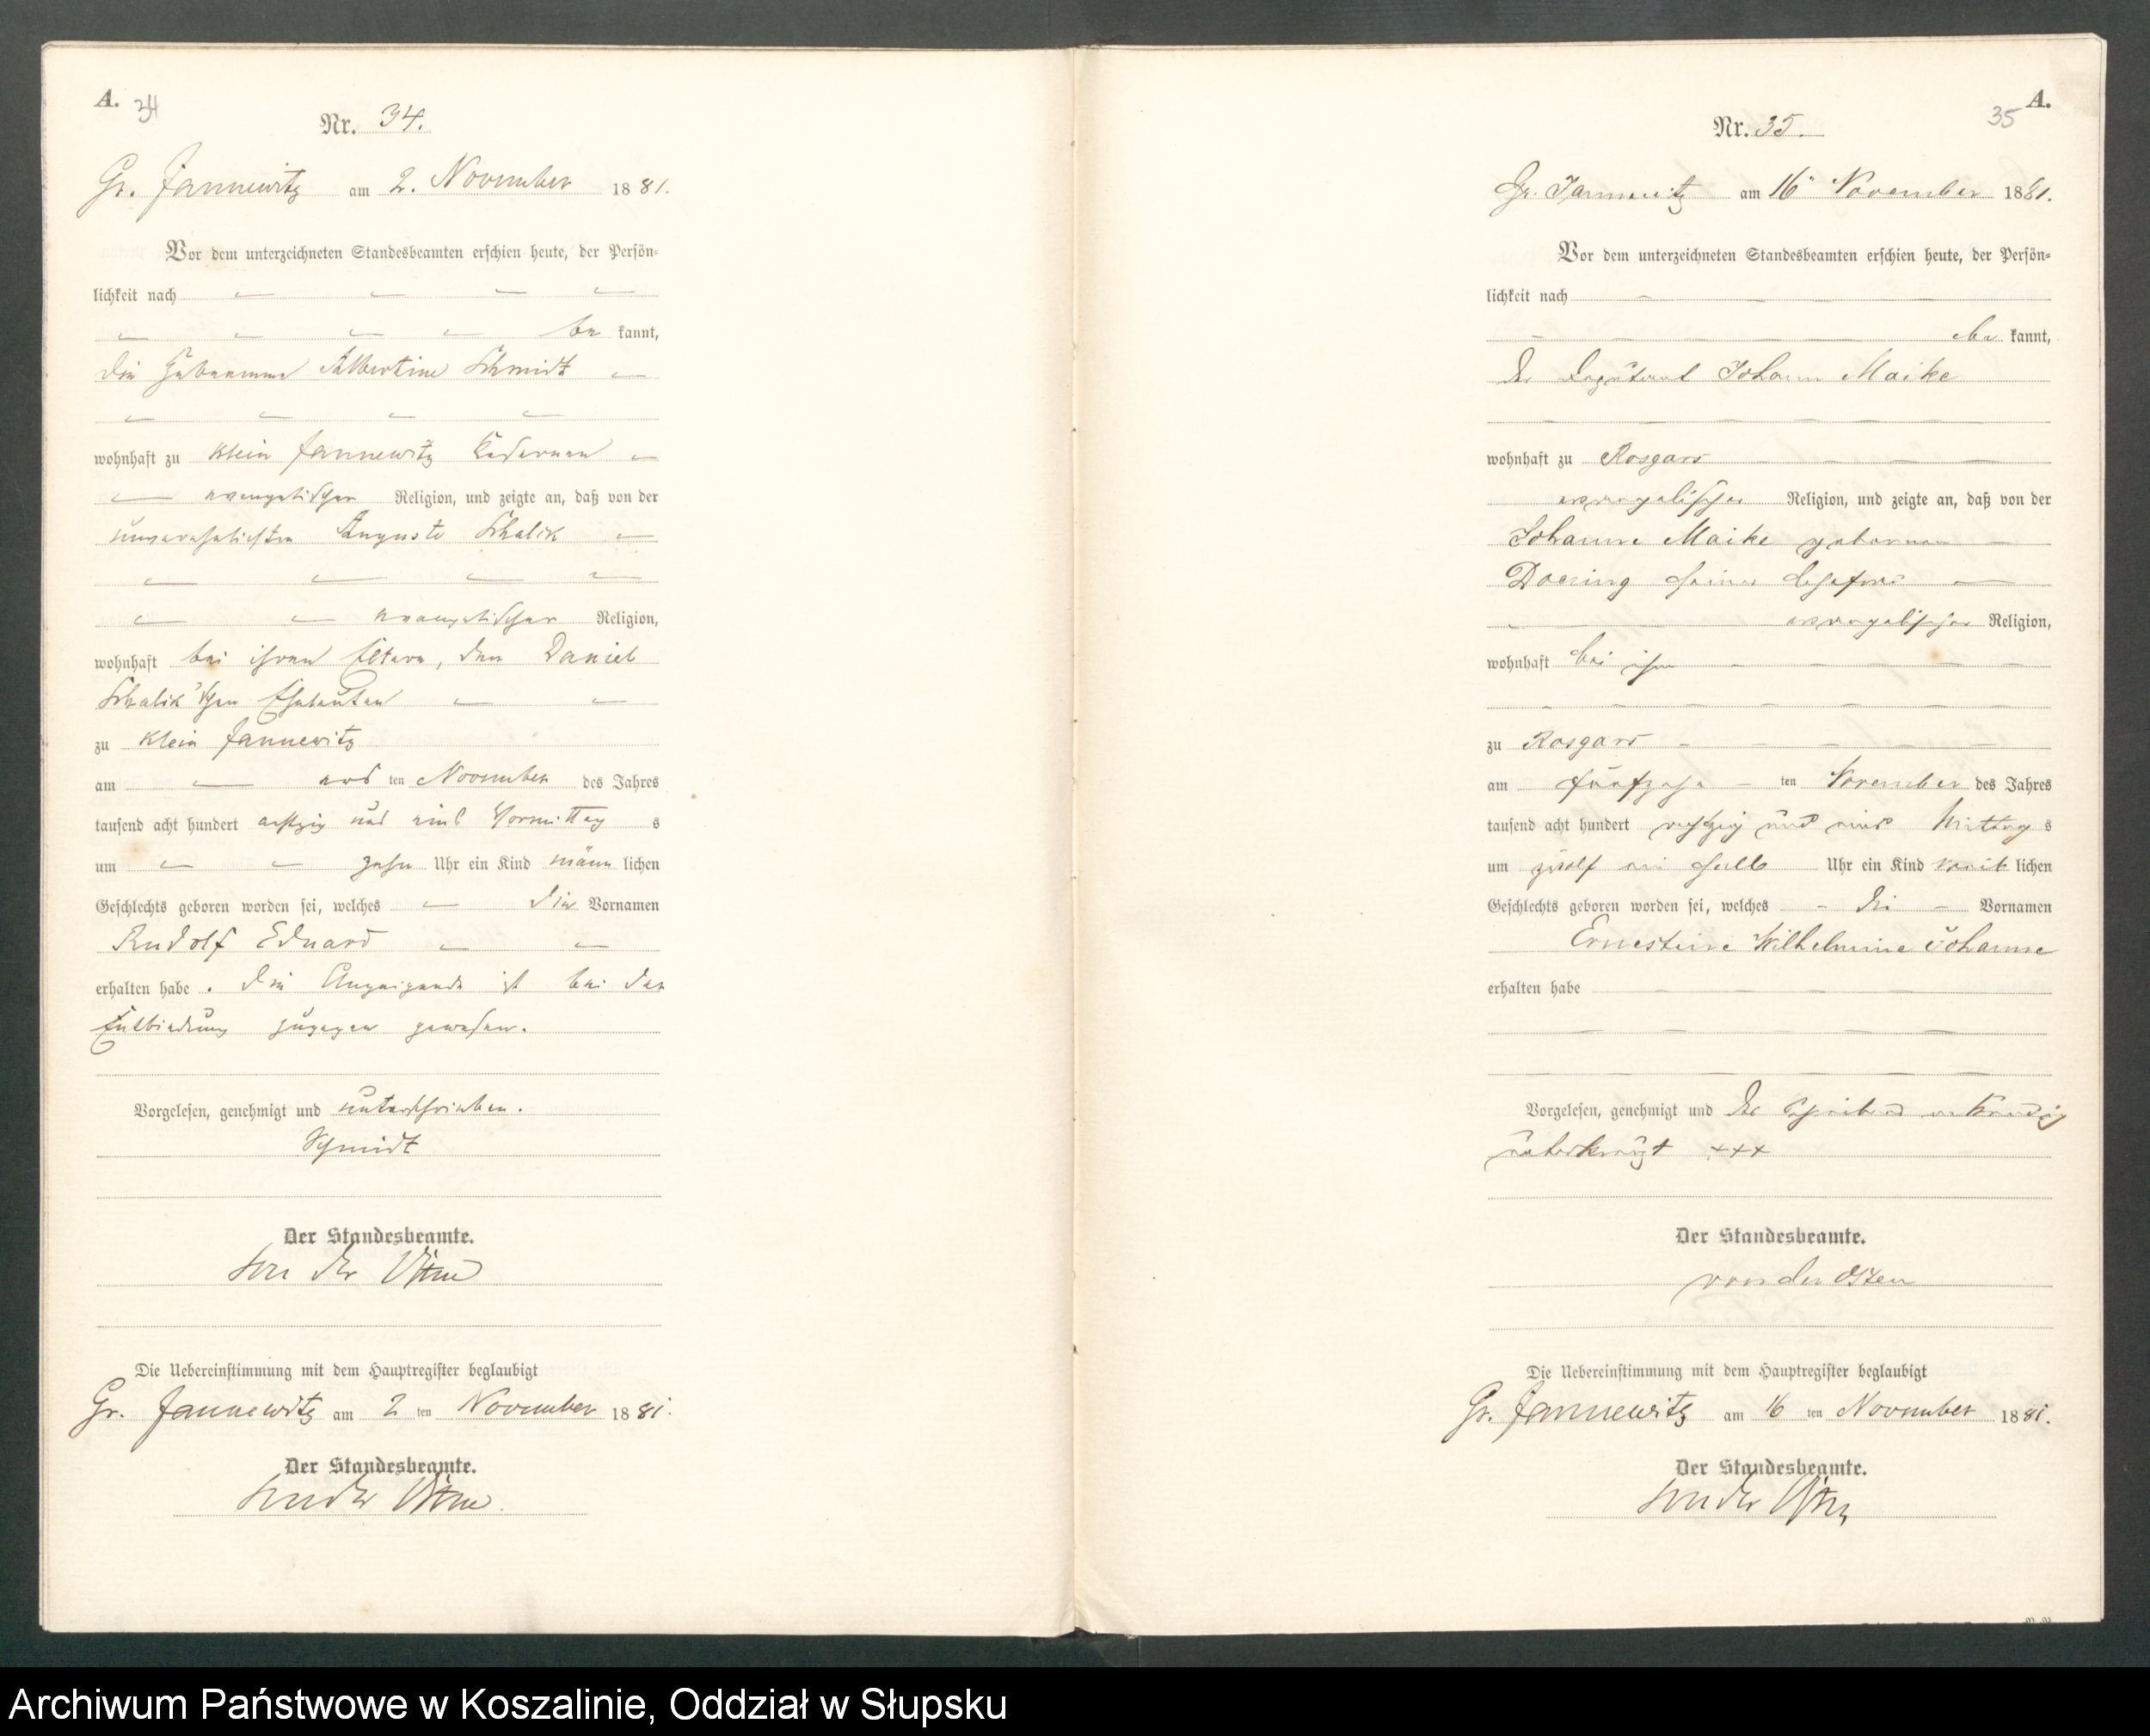 A. 34
Nr. 34.
Gr. Jannewitz am 2. November 1881.
Vor dem unterzeichneten Standesbeamten erschien heute, der Persön-
lichkeit nach
be kannt,
die Hebeamme Albertine Schmidt
wohnhaft zu Klein Jannewitz
evangelischer Religion, und zeigte an, daß von der
unverehelichten Auguste
evangelischer Religion,
wohnhaft bei ihren Eltern, den Daniel
schen Eheleuten
zu Klein Jannewitz
am ten November des Jahres
tausend acht hundert achtzig und eins Vormittag s
um zehn Uhr ein Kind männ lichen
Geschlechts geboren worden sei, welches die Vornamen
Rudolf Eduard
erhalten habe. Die Anzeigende ist bei der
Entbindung zugegen gewesen.
Vorgelesen, genehmigt und unterschrieben.
Schmidt
Der Standesbeamte.
von der Osten
Die Uebereinstimmung mit dem Hauptregister beglaubigt
Gr. Jannewitz am 2 ten November 1881.
Der Standesbeamte.
von der Osten.
A.
35
Nr. 35.
Gr. Jannewitz am 16 November 1881.
Vor dem unterzeichneten Standesbeamten erschien heute, der Persön-
lichkeit nach
be kannt,
der Deputant Johann Maike
wohnhaft zu Rosgars
evangelischer Religion, und zeigte an, daß von der
Johanne Maike geborenen
Doering seiner Ehefrau
evangelischer Religion,
wohnhaft bei ihm
zu Rosgars
am fünfzehn ten November des Jahres
tausend acht hundert achtzig und eins Mittag s
um zwölf ein halb Uhr ein Kind weib lichen
Geschlechts geboren worden sei, welches die Vornamen
Ernestine Wilhelmine Johanne
erhalten habe
Vorgelesen, genehmigt und
unterkreuzt +++
Der Standesbeamte.
von der Osten
Die Uebereinstimmung mit dem Hauptregister beglaubigt
Gr. Jannewitz am 16 ten November 1881.
Der Standesbeamte.
von der Osten
Archiwum Państwowe w Koszalinie, Oddział w Słupsku